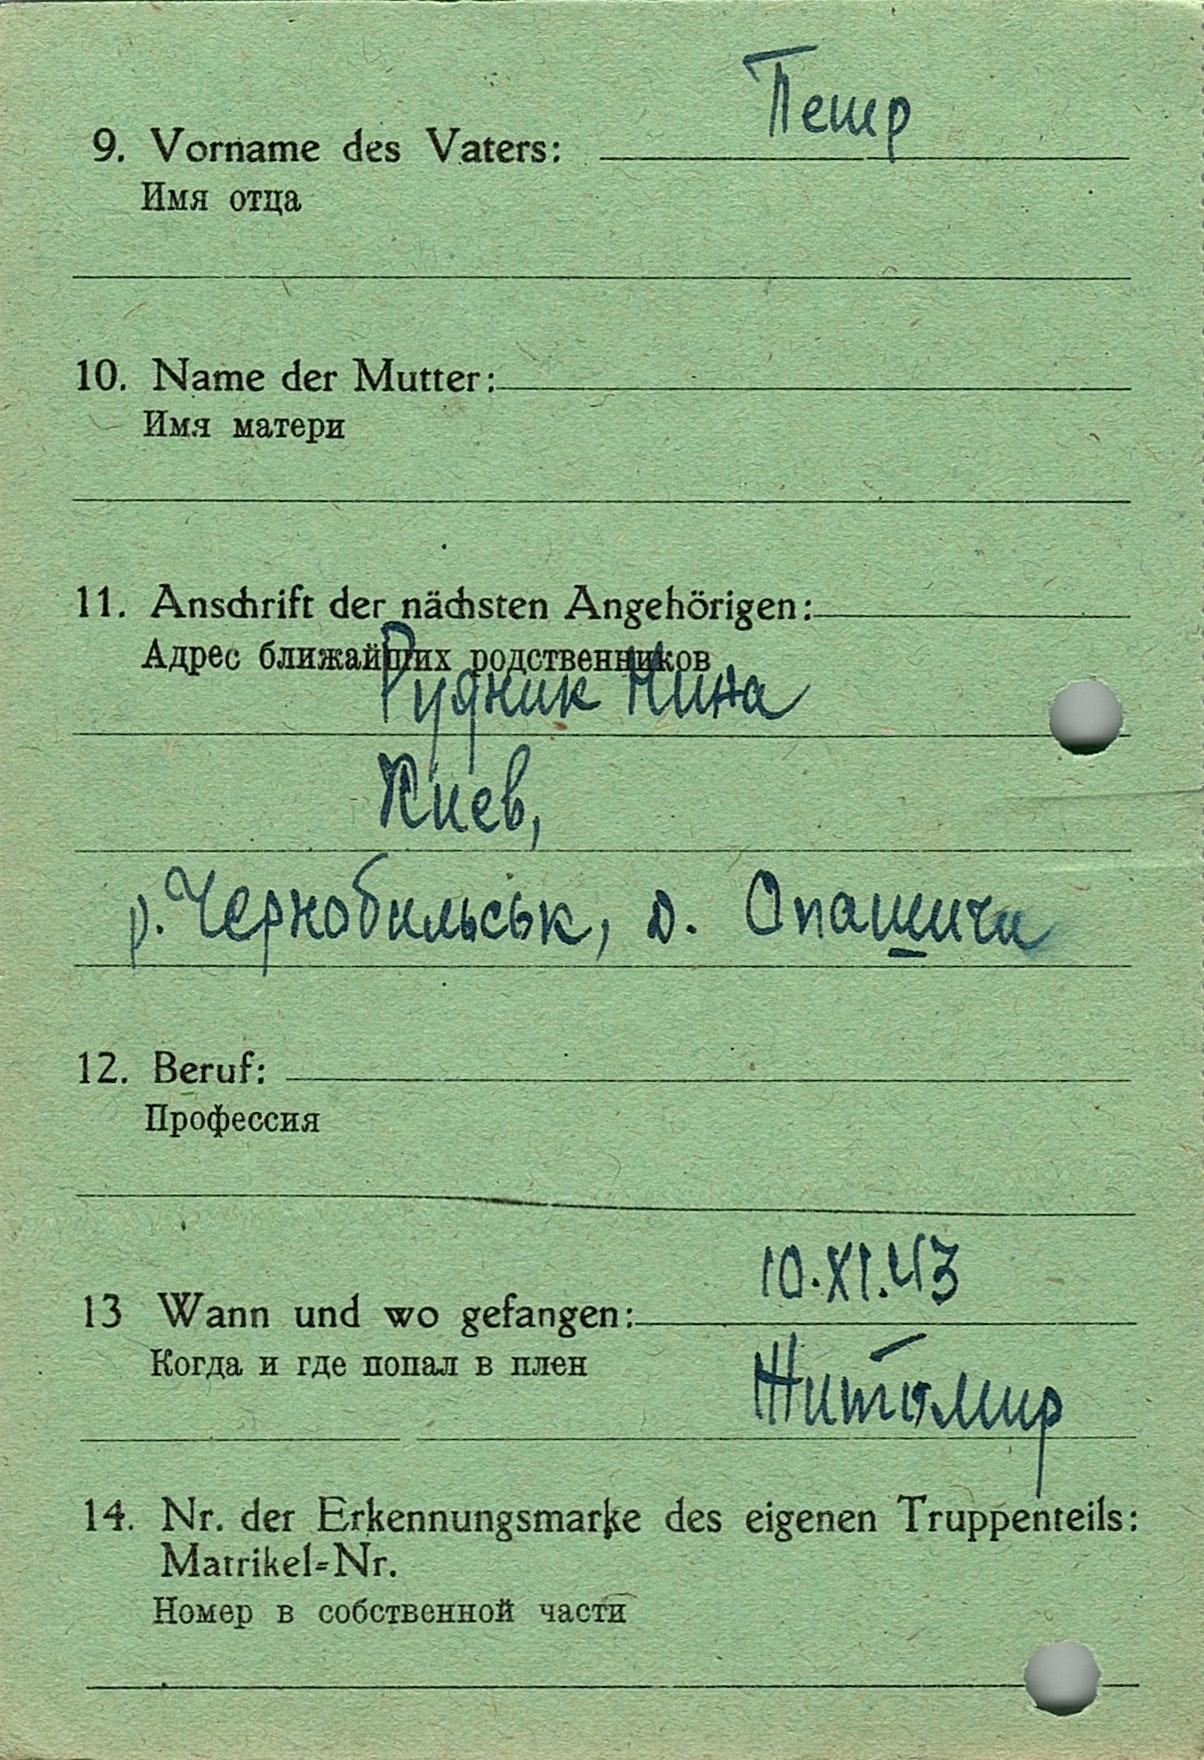 Петр
9. Vorname des Vaters:
Имя отца
10. Name der Mutter:
Имя матери
11. Anschrift der nächsten Angehörigen:
Адрес ближайших родственников
Рудник Нина
Киев,
р. Чернобильськ, д. Опашичи
12. Beruf:
Профессия
10.XI.43
13 Wann und wo gefangen:
Когда и где попал в плен
Житомир
14. Nr. der Erkennungsmarke des eigenen Truppenteils:
Matrikel=Nr.
Номер в собственной части